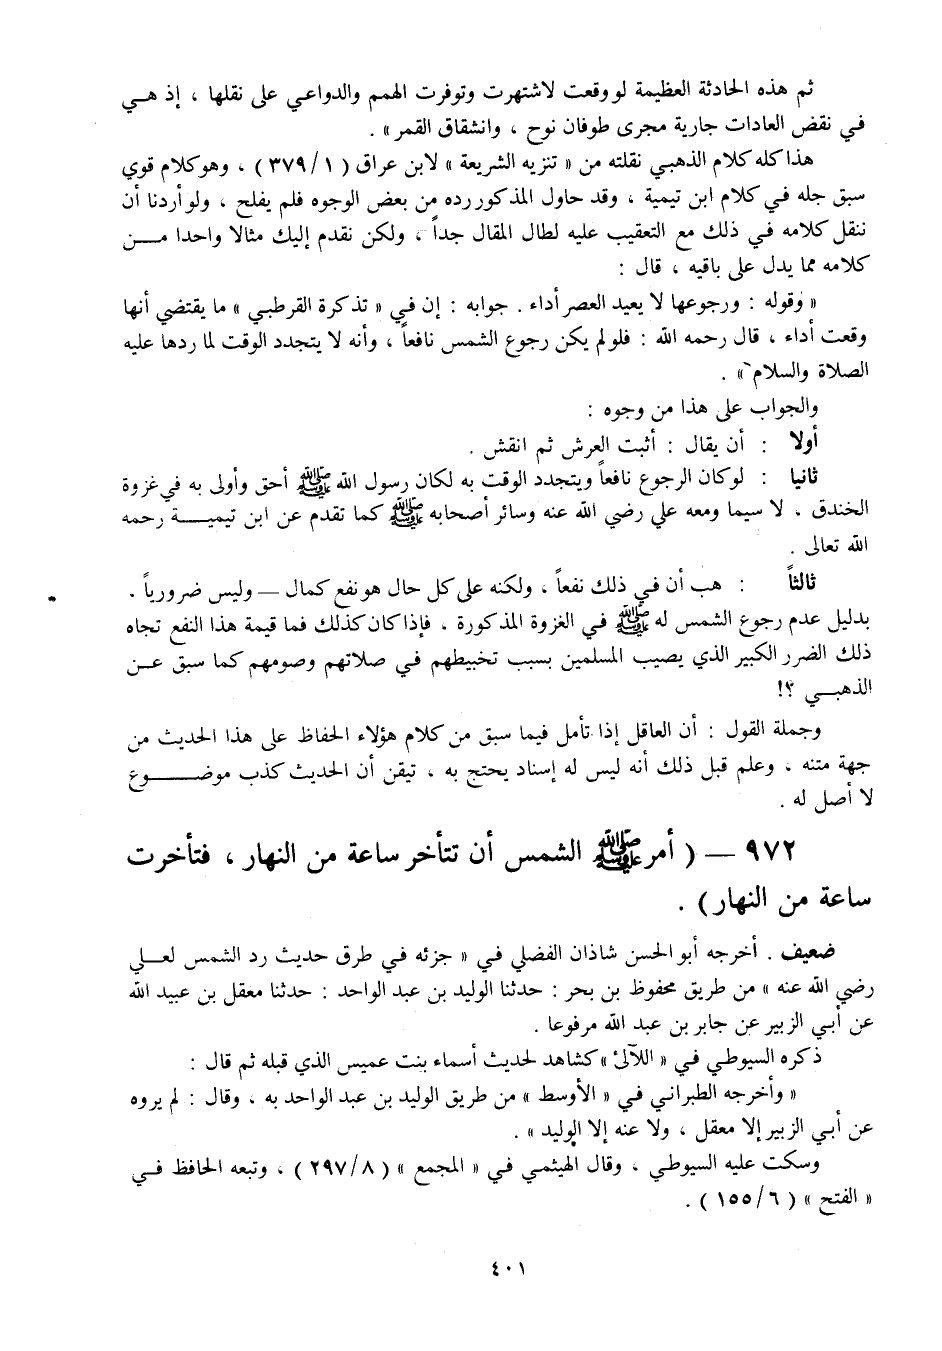 ثم هذه الحادثة العظيمة لو وقعت لاشتهرت وتوفرت الهمم والدواعي على نقلها ، إذ هي
في نقض العادات جارية مجرى طوفان نوح ، وانشقاق القمر » .
هذا كله كلام الذهبي نقلته من « تنزيه الشريعة » لابن عراق ( ١/ ٣٧٩ ) ، وهو كلام قوي
سبق جله في كلام ابن تيمية ، وقد حاول المذكور رده من بعض الوجوه فلم يفلح ، ولو أردنا أن
ننقل كلامه في ذلك مع التعقيب عليه لطال المقال جداً ، ولكن نقدم إليك مثالا واحدا مـــن
كلامه مما يدل على باقيه ، قال :
« وقوله : ورجوعها لا يعيد العصر أداء . جوابه : إن في « تذكرة القرطبي » ما يقتضي أنها
وقعت أداء ، قال رحمه الله : فلو لم يكن رجوع الشمس نافعاً ، وأنه لا يتجدد الوقت لما ردها عليه
الصلاة والسلام » .
والجواب على هذا من وجوه :
أولا : أن يقال : أثبت العرش ثم انقش .
ثانيا : لو كان الرجوع نافعاً ويتجدد الوقت به لكان رسول الله ﷺ أحق وأولى به في غزوة
الخندق ، لا سيما ومعه علي رضي الله عنه وسائر أصحابه ﷺ كما تقدم عن ابن تيميـــة رحمه
الله تعالى .
ثالثاً : هب أن في ذلك نفعاً ، ولكنه على كل حال هو نفع كمال — وليس ضرورياً .
بدليل عدم رجوع الشمس له ﷺ في الغزوة المذكورة ، فإذا كان كذلك فما قيمة هذا النفع تجاه
ذلك الضرر الكبير الذي يصيب المسلمين بسبب تخبيطهم في صلاتهم وصومهم كما سبق عـن
الذهبـي ؟!
وجملة القول : أن العاقل إذا تأمل فيما سبق من كلام هؤلاء الحفاظ على هذا الحديث من
جهة متنه ، وعلم قبل ذلك أنه ليس له إسناد يحتج به ، تيقن أن الحديث كذب موضـــــوع
لا أصل له .
٩٧٢ — ( أمر ﷺ الشمس أن تتأخر ساعة من النهار ، فتأخرت
ساعة من النهار) .
ضعيف . أخرجه أبو الحسن شاذان الفضلي في « جزئه في طرق حديث رد الشمس لعـلي
رضي الله عنه » من طريق محفوظ بن بحر : حدثنا الوليد بن عبد الواحد : حدثنا معقل بن عبيد الله
عن أبي الزبير عن جابر بن عبد الله مرفوعا .
ذكره السيوطي في « اللآلئ » كشاهد لحديث أسماء بنت عميس الذي قبله ثم قال :
« وأخرجه الطبراني في « الأوسط » من طريق الوليد بن عبد الواحد به ، وقال : لم يروه
عن أبي الزبير إلا معقل ، ولا عنه إلا الوليد » .
وسكت عليه السيوطي ، وقال الهيثمي في « المجمع » ( ٨/ ٢٩٧ ) ، وتبعه الحافظ في
« الفتح » ( ٦/ ١٥٥ ) .
٤٠١